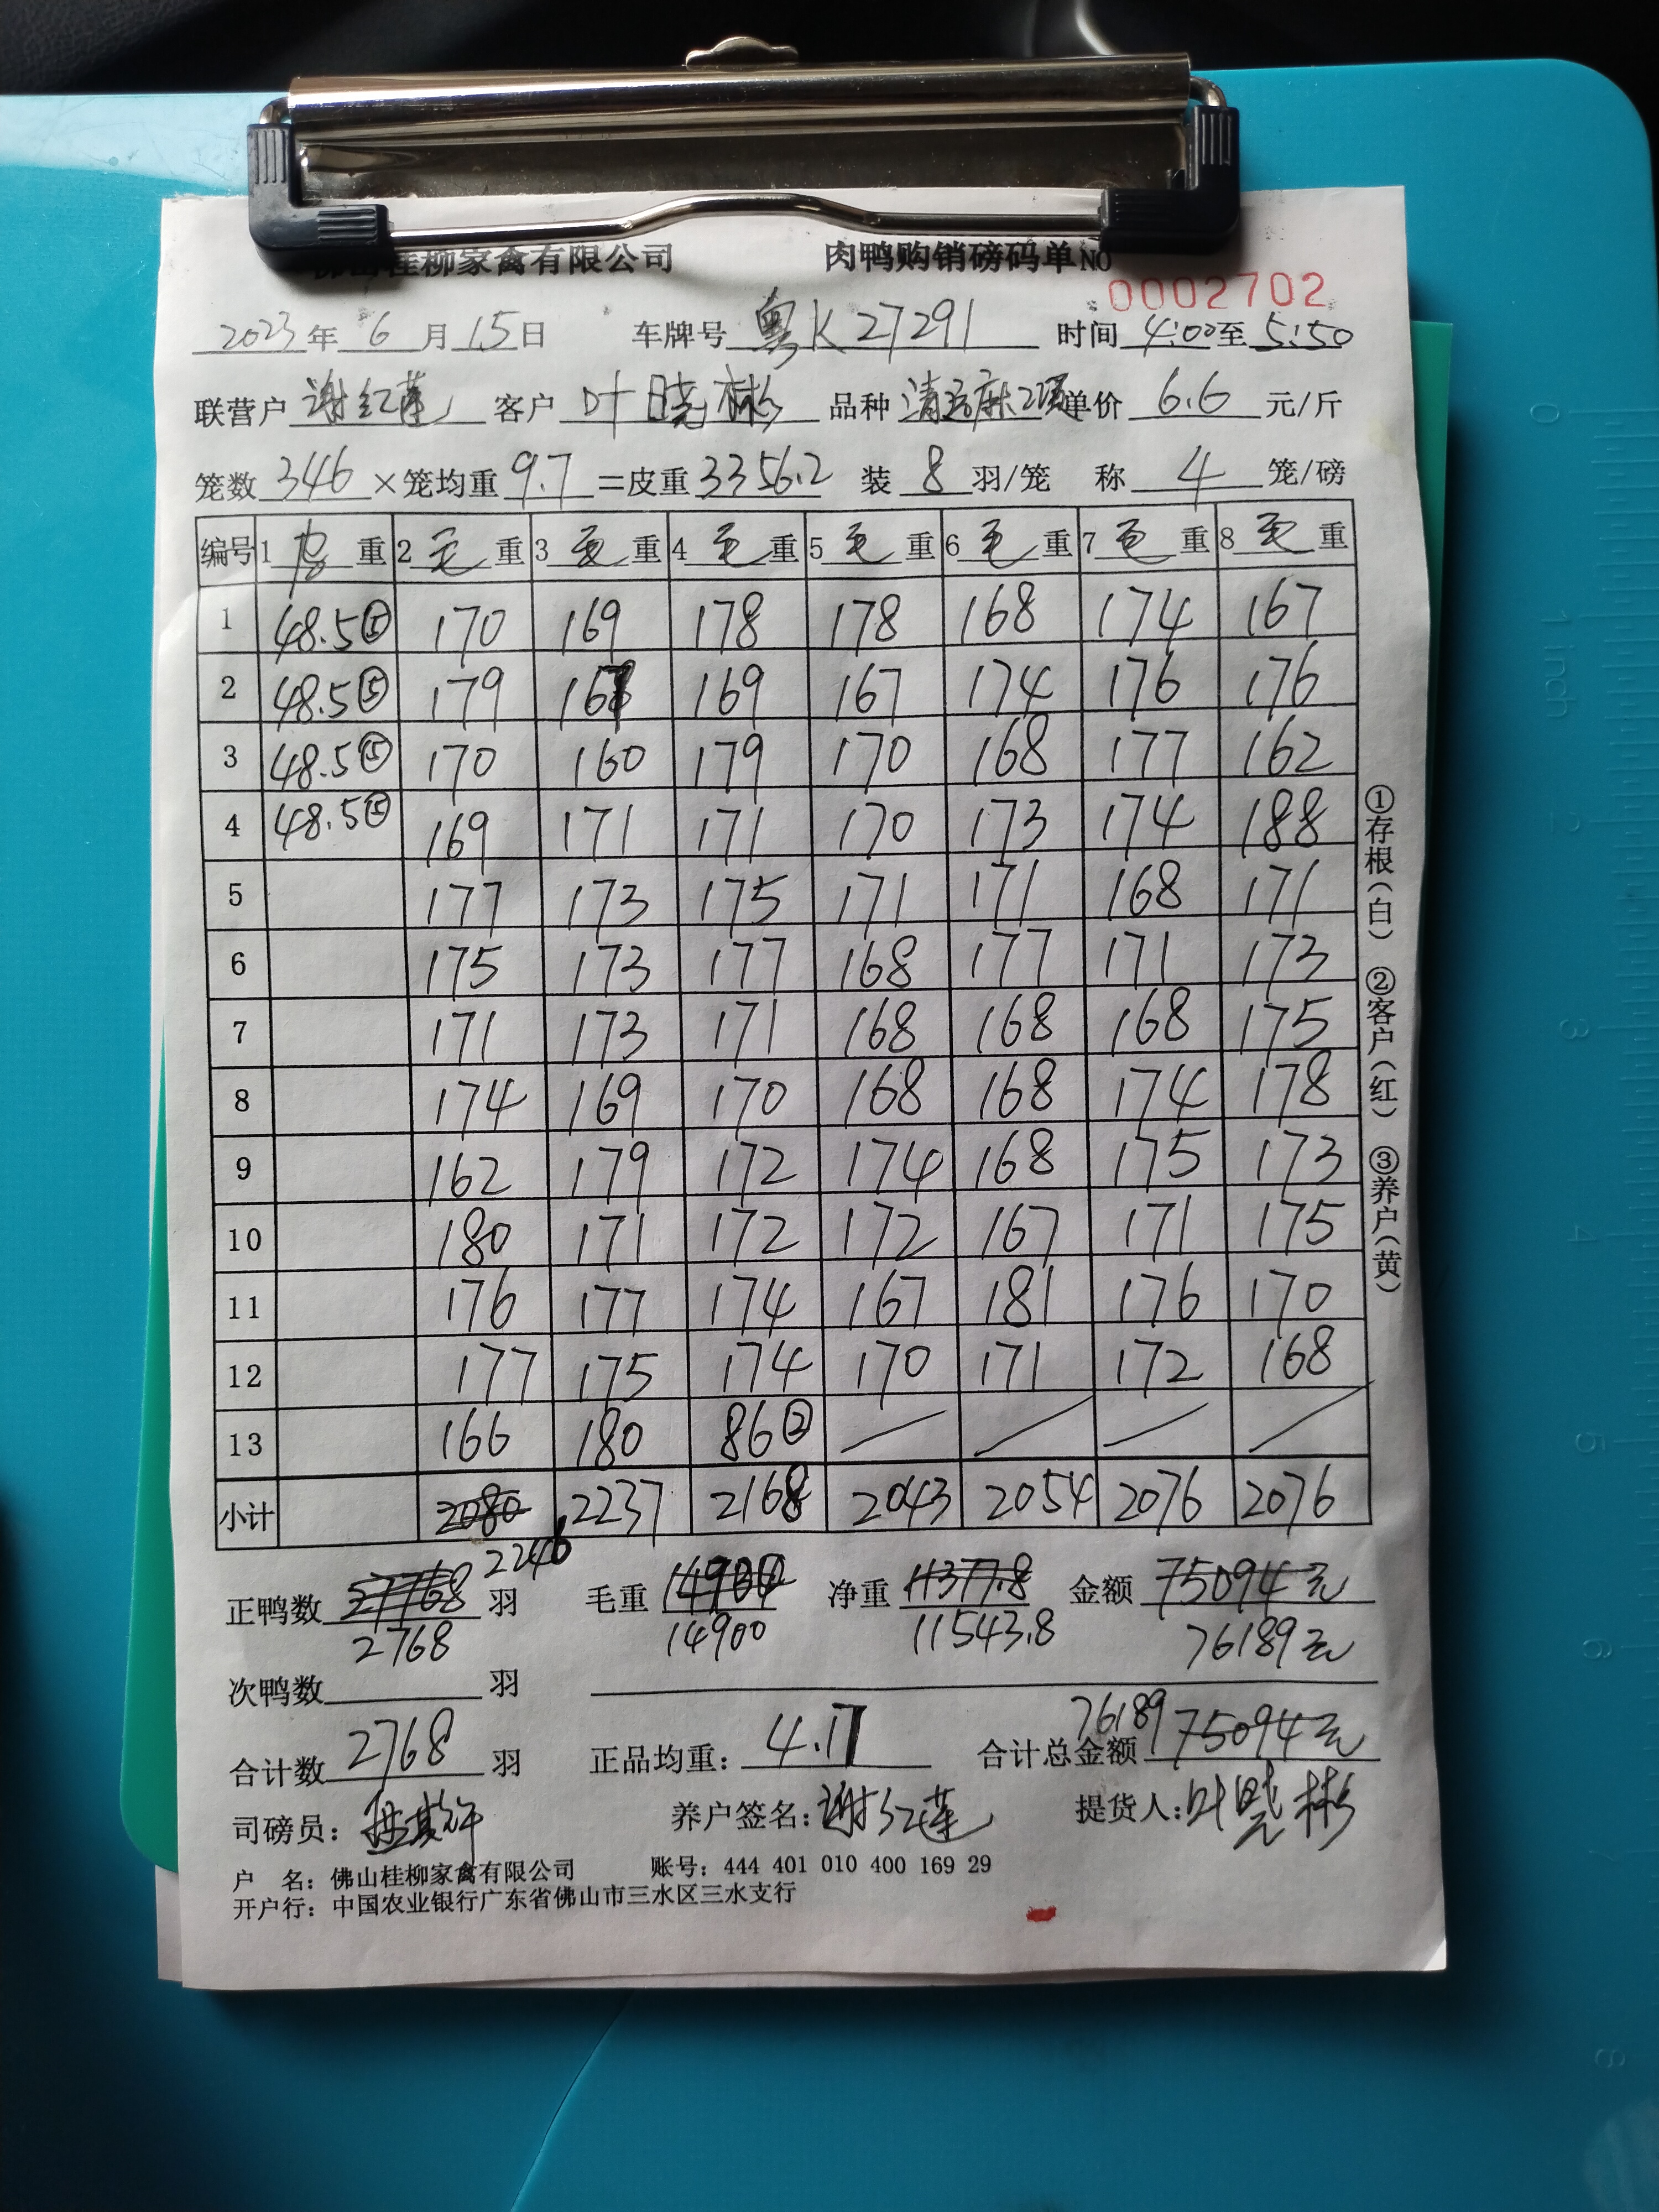 佛山桂柳家禽有限公司 肉鸭购销磅码单 NO 0002702
2023年6月15日 车牌号 粤K27291 时间 4:00至5:50
联营户 谢红莲 客户 叶晓彬 品种 清远麻 单价 6.6 元/斤
笼数 346 ×笼均重 9.7 =皮重 3356.2 装 8 羽/笼 称 4 笼/磅
编号 1 重 2 毛 重 3 毛 重 4 毛 重 5 毛 重 6 毛 重 7 毛 重 8 毛 重
1 48.5⑤ 170 169 178 178 168 174 167
2 48.5⑤ 179 167 169 167 174 176 176
3 48.5⑤ 170 160 179 170 168 177 162
4 48.5⑤ 169 171 171 170 173 174 188
5 177 173 175 171 171 168 171
6 175 173 177 168 177 171 173
7 171 173 171 168 168 168 175
8 174 169 170 168 168 174 178
9 162 179 172 174 168 175 173
10 180 171 172 172 167 171 175
11 176 177 174 167 181 176 170
12 177 175 174 170 171 172 168
13 166 180 86② / / / /
小计 2080 2237 2168 2043 2054 2076 2076
2246
正鸭数 27768 羽 毛重 净重 11377.8 金额 75094元
2768 14900 11543.8 76189元
次鸭数 羽
76189
合计数 2768 羽 正品均重: 4.17 合计总金额 75094元
司磅员: 养户签名: 谢红莲 提货人: 叶晓彬
户 名: 佛山桂柳家禽有限公司 账号: 444 401 010 400 169 29
开户行: 中国农业银行广东省佛山市三水区三水支行
①存根(白) ②客户(红) ③养户(黄)
0
1 inch
2
3
4
5
6
8